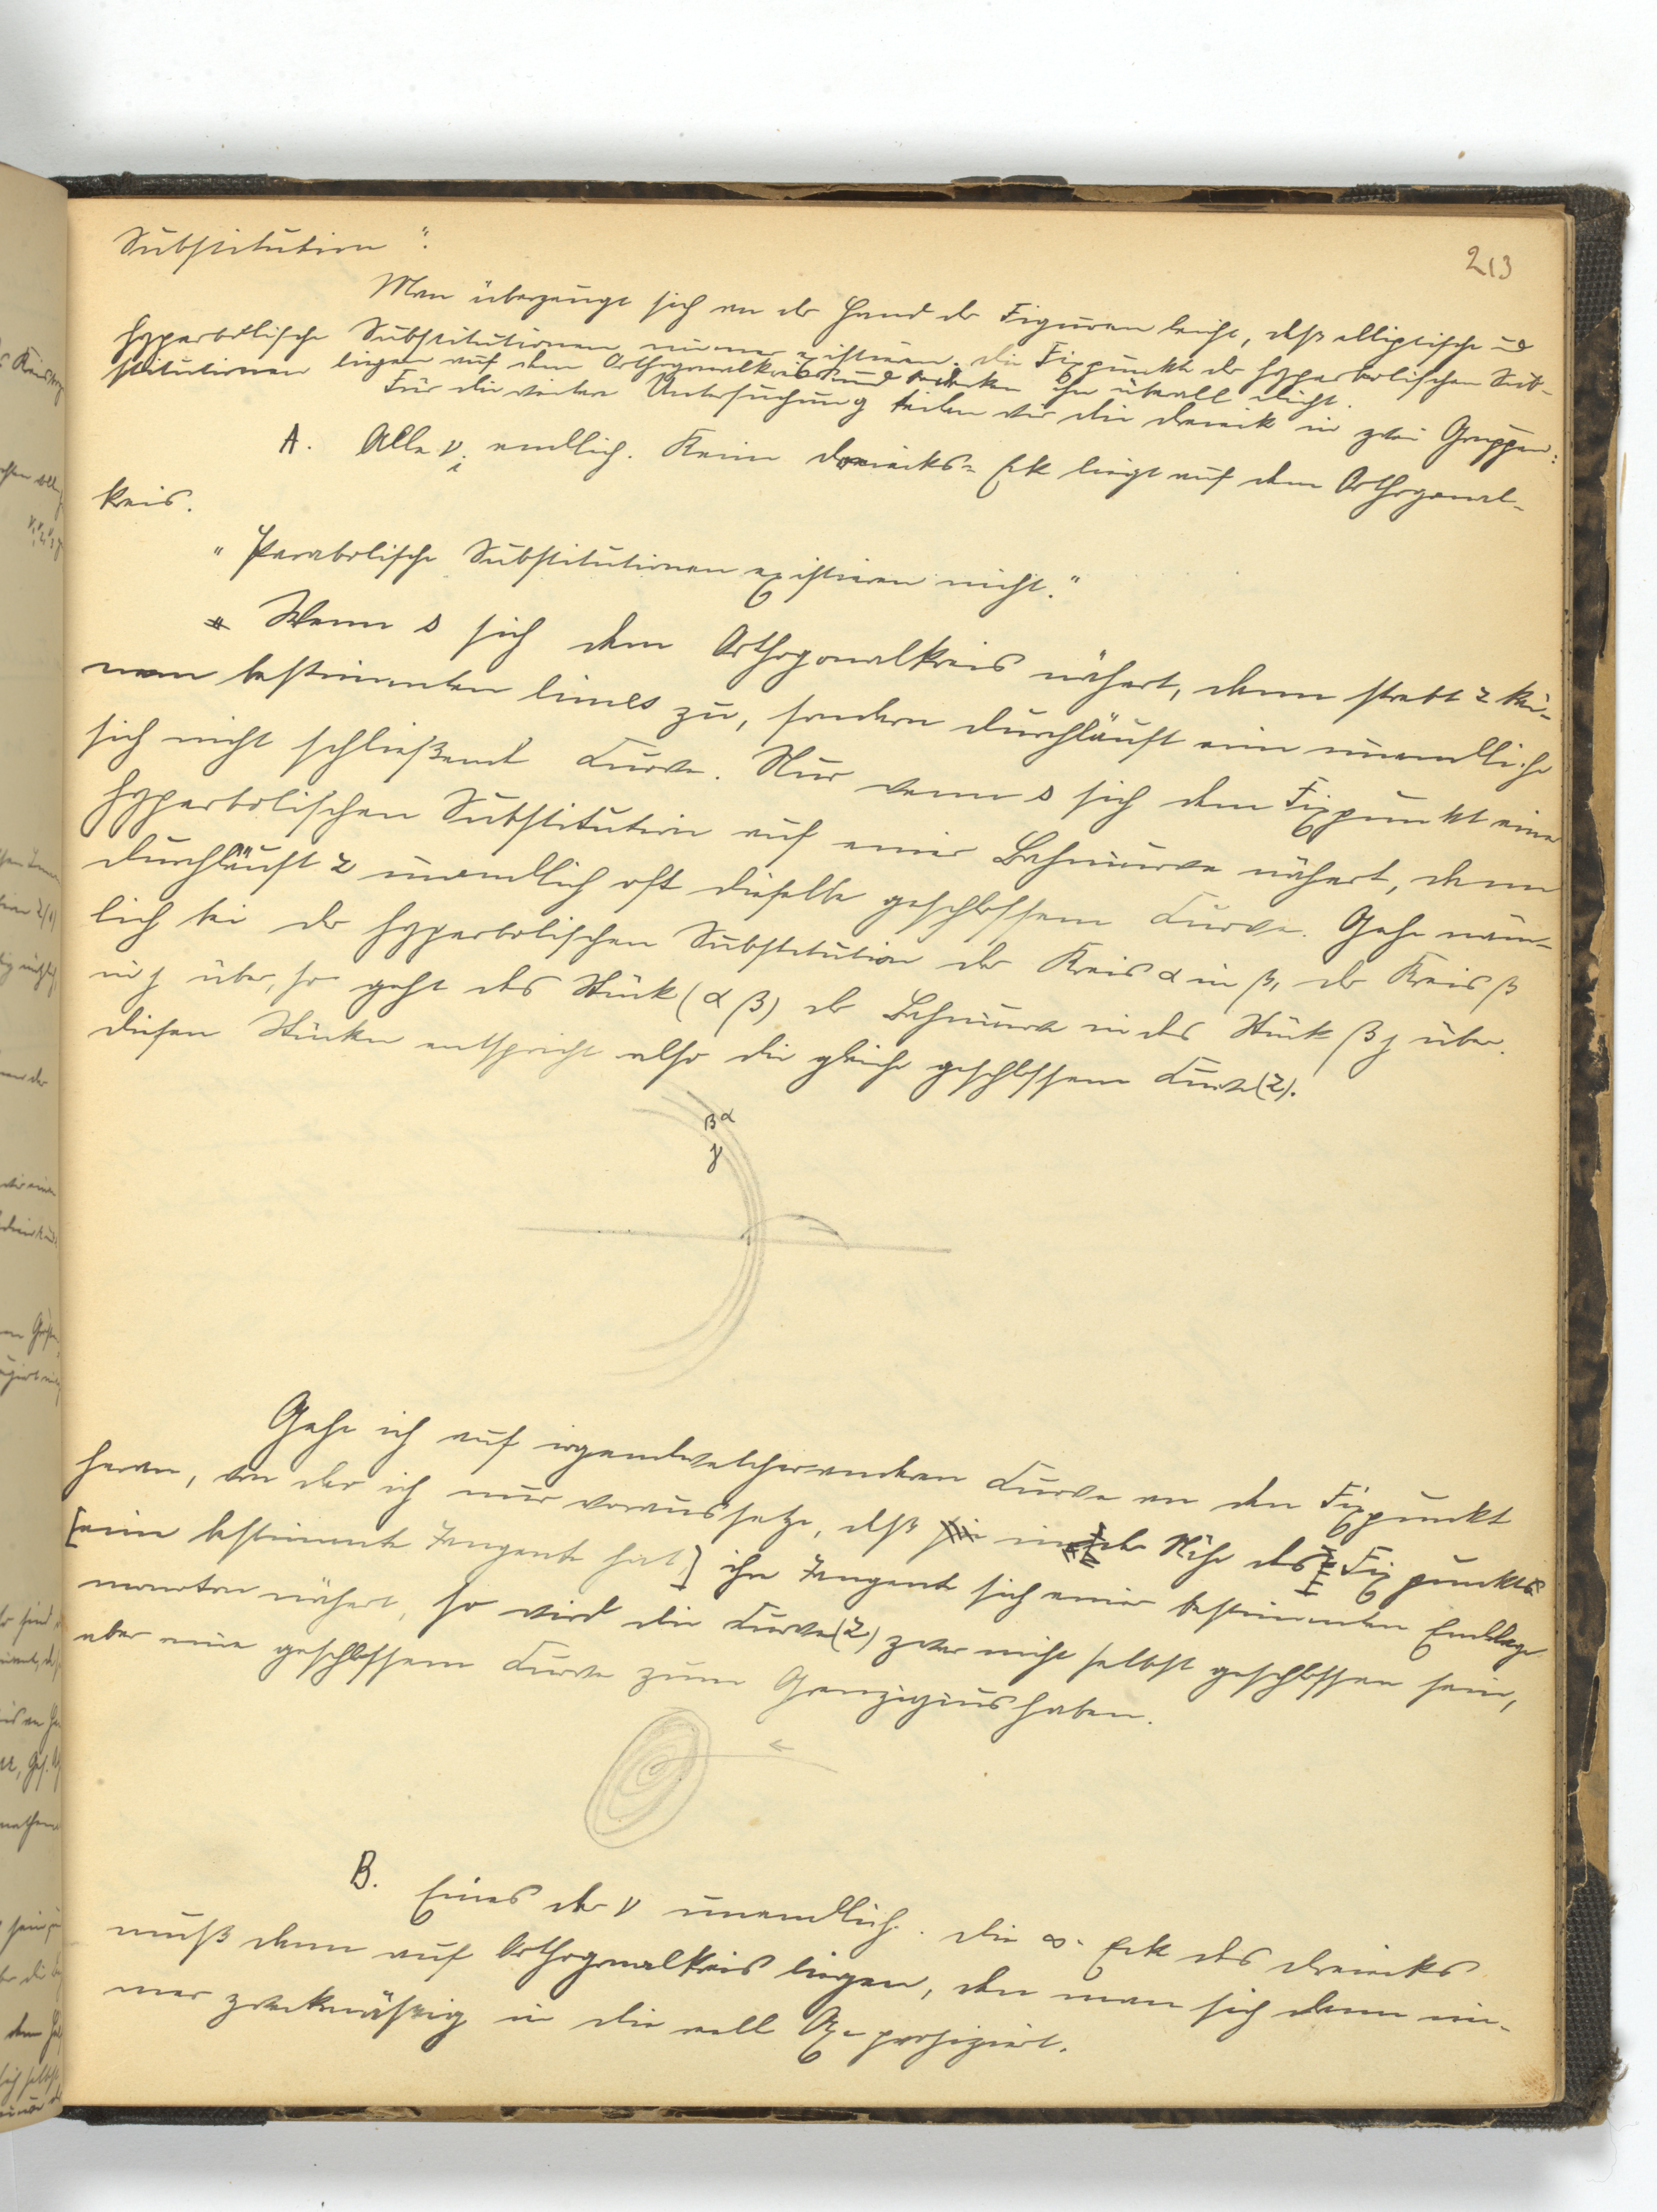 213
Substitution".
Man überzeugt sich an der Hand der Figuren leicht, daß elliptische und
hyperbolische Substitutionen immer existieren. Die Fixpunkte der hyperbolischen Sub-
stitutionen liegen auf dem Orthogonalkreis und bedecken ihn überall dicht.
Für die weitere Untersuchung teilen wir die Dreiecke in zwei Gruppen:
A. Alle ν_i endlich. Kein Dreiecks-Eck liegt auf dem Orthogonal-
kreis.
"Parabolische Substitutionen existieren nicht."
Wenn s sich dem Orthogonalkreis nähert, dann strebt z kei-
nem bestimmten limes zu, sondern durchläuft eine unendliche
sich nicht schließende Curve. Nur wenn s sich dem Fixpunkt einer
hyperbolischen Substitution auf einer Bahncurve nähert, dann
durchläuft z unendlich oft dieselbe geschlossene Curve. Gehe näm-
lich bei der hyperbolischen Substitution der Kreis α in β, der Kreis β
in γ über, so geht das Stück (αβ) der Bahncurve in das Stück βγ über.
Diesen Stücken entspricht also die gleiche geschlossene Curve (z).
β α
γ
Gehe ich auf irgendwelcher anderen Curve an den Fixpunkt
heran, von der ich nur voraussetze, daß in der Nähe des Fixpunktes
[eine bestimmte Tangente hat] ihre Tangente sich einer bestimmten Endlage
monoton nähert, so wird die Curve (z) zwar nicht selbst geschlossen sein,
aber eine geschlossene Curve zum Grenzzyklus haben.
B. Eines der ν unendlich. Die ∞-Eck des Dreiecks
muß dann auf Orthogonalkreis liegen, den man sich dann im-
mer zweckmäßig in die reelle Axe projiziert.